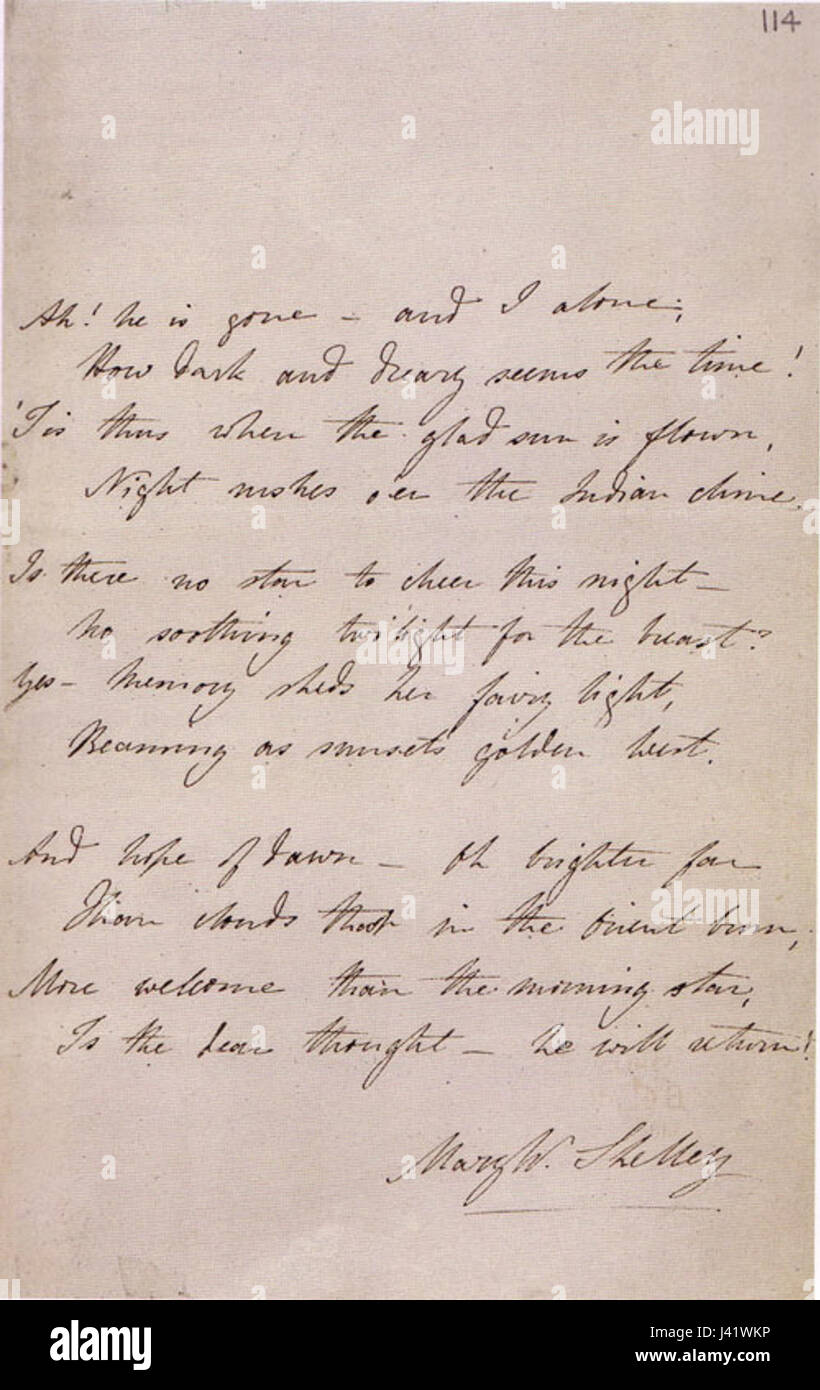 114
Ah! he is gone – and I alone;
How dark and dreary seems the time!
'Tis thus when the glad sun is flown,
Night rushes oer the Indian clime.
Is there no star to cheer this night –
No soothing twilight for the breast?
Yes – Memory sheds her fairy light,
Beaming as sunsets golden west.
And hope of dawn – Oh brighter far
Than clouds that in the orient burn;
More welcome than the morning star,
Is the dear thought – he will return!
Mary W. Shelley
alamy
alamy
alamy
alamy
Image ID: J41WKP
www.alamy.com